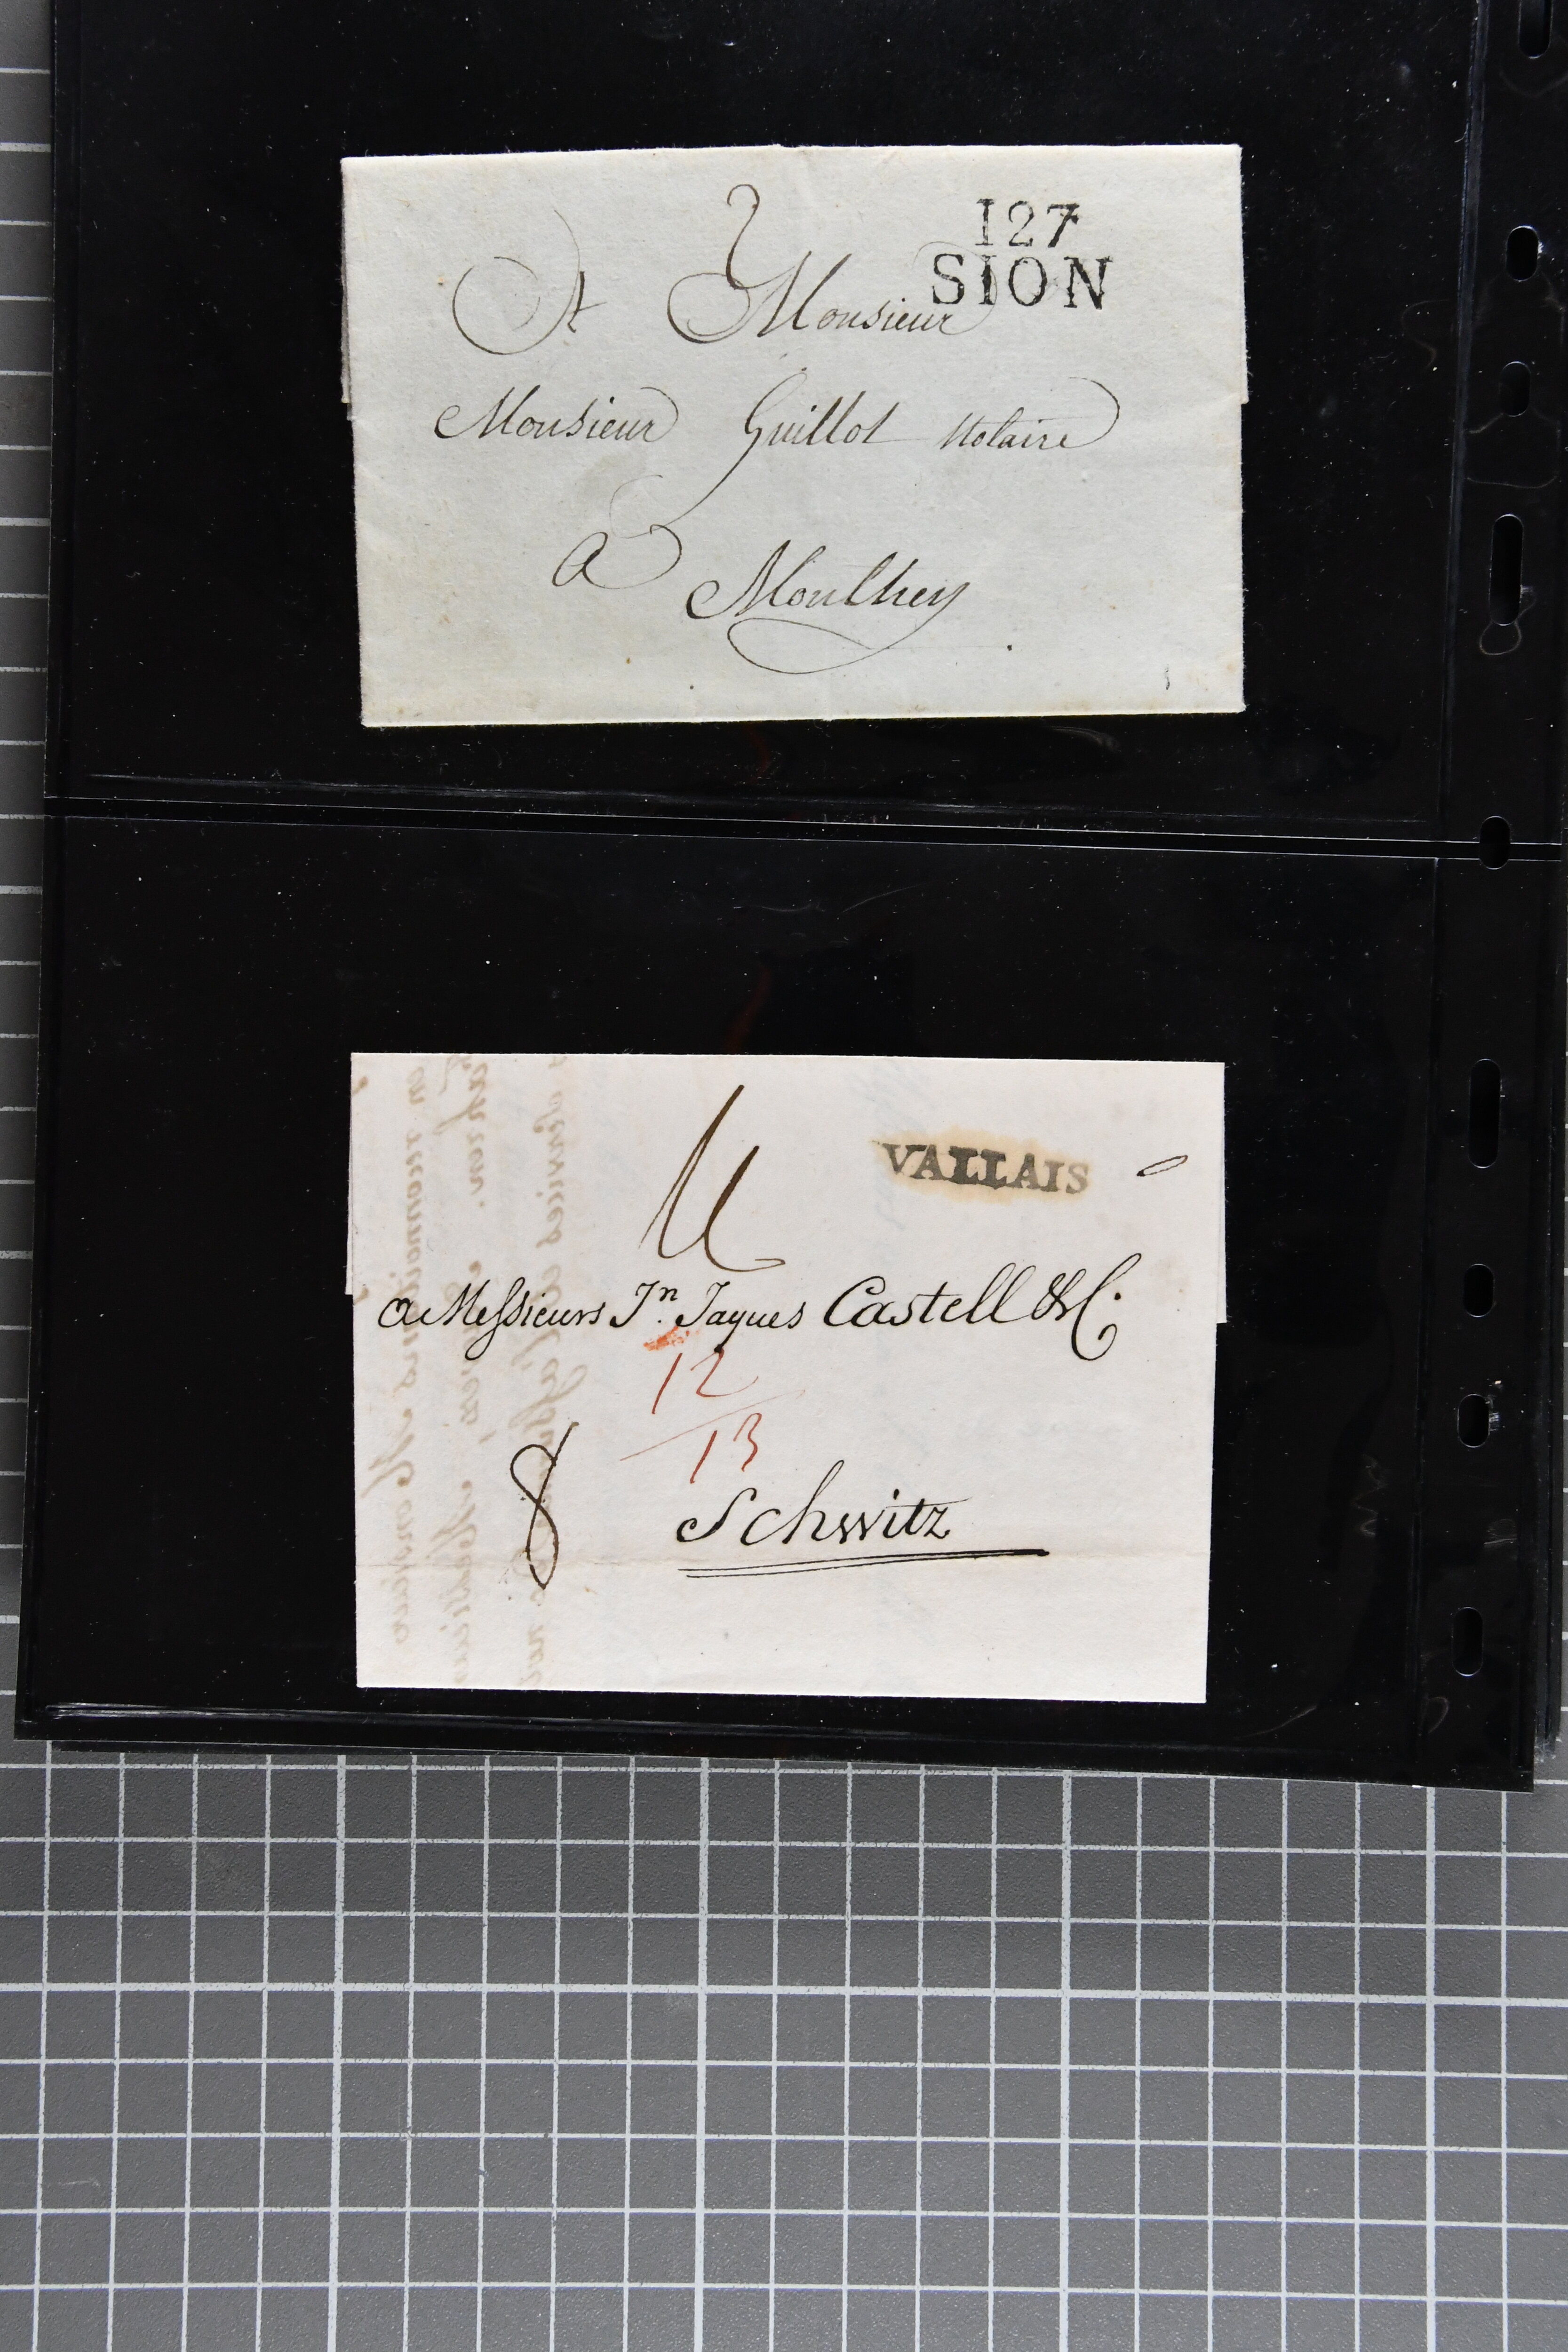 2
127
SION
A Monsieur
Monsieur Guillot Notaire
a Monthey
VALLAIS
a Messieurs Jn. Jaques Castell & C.
12
13
8
Schwitz